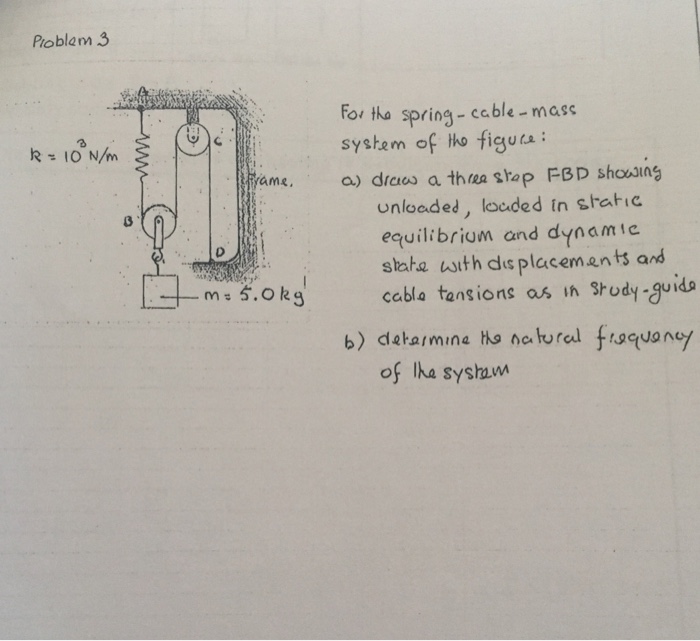 Problem 3
A
k = 10³ N/m
C
Frame.
B
D
m = 5.0 kg
For the spring-cable-mass
system of the figure:
a) draw a three step FBD showing
unloaded, loaded in static
equilibrium and dynamic
state with displacements and
cable tensions as in study-guide
b) determine the natural frequency
of the system